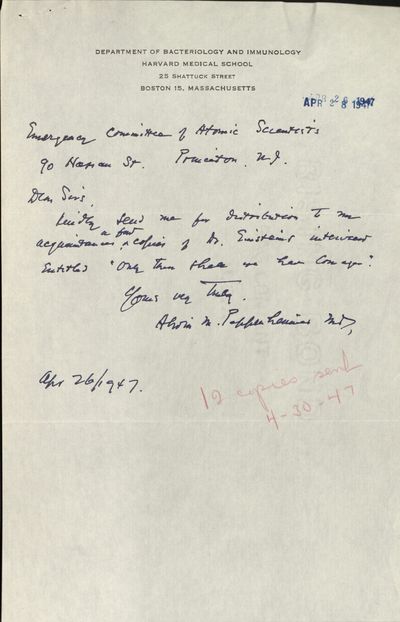 DEPARTMENT OF BACTERIOLOGY AND IMMUNOLOGY
HARVARD MEDICAL SCHOOL
25 SHATTUCK STREET
BOSTON 15, MASSACHUSETTS
APR 28 1947
Emergency Committee of Atomic Scientists
90 Nassau St. Princeton, N.J.
Dear Sirs,
Kindly send me for distribution to my
a few
acquaintances, copies of Dr. Einstein's interview
Entitled "Only then shall we have Courage".
Yours very Truly.
Alwin M. Pappenheimer MD,
Apr 26/1947.
12 copies sent
4-30-47